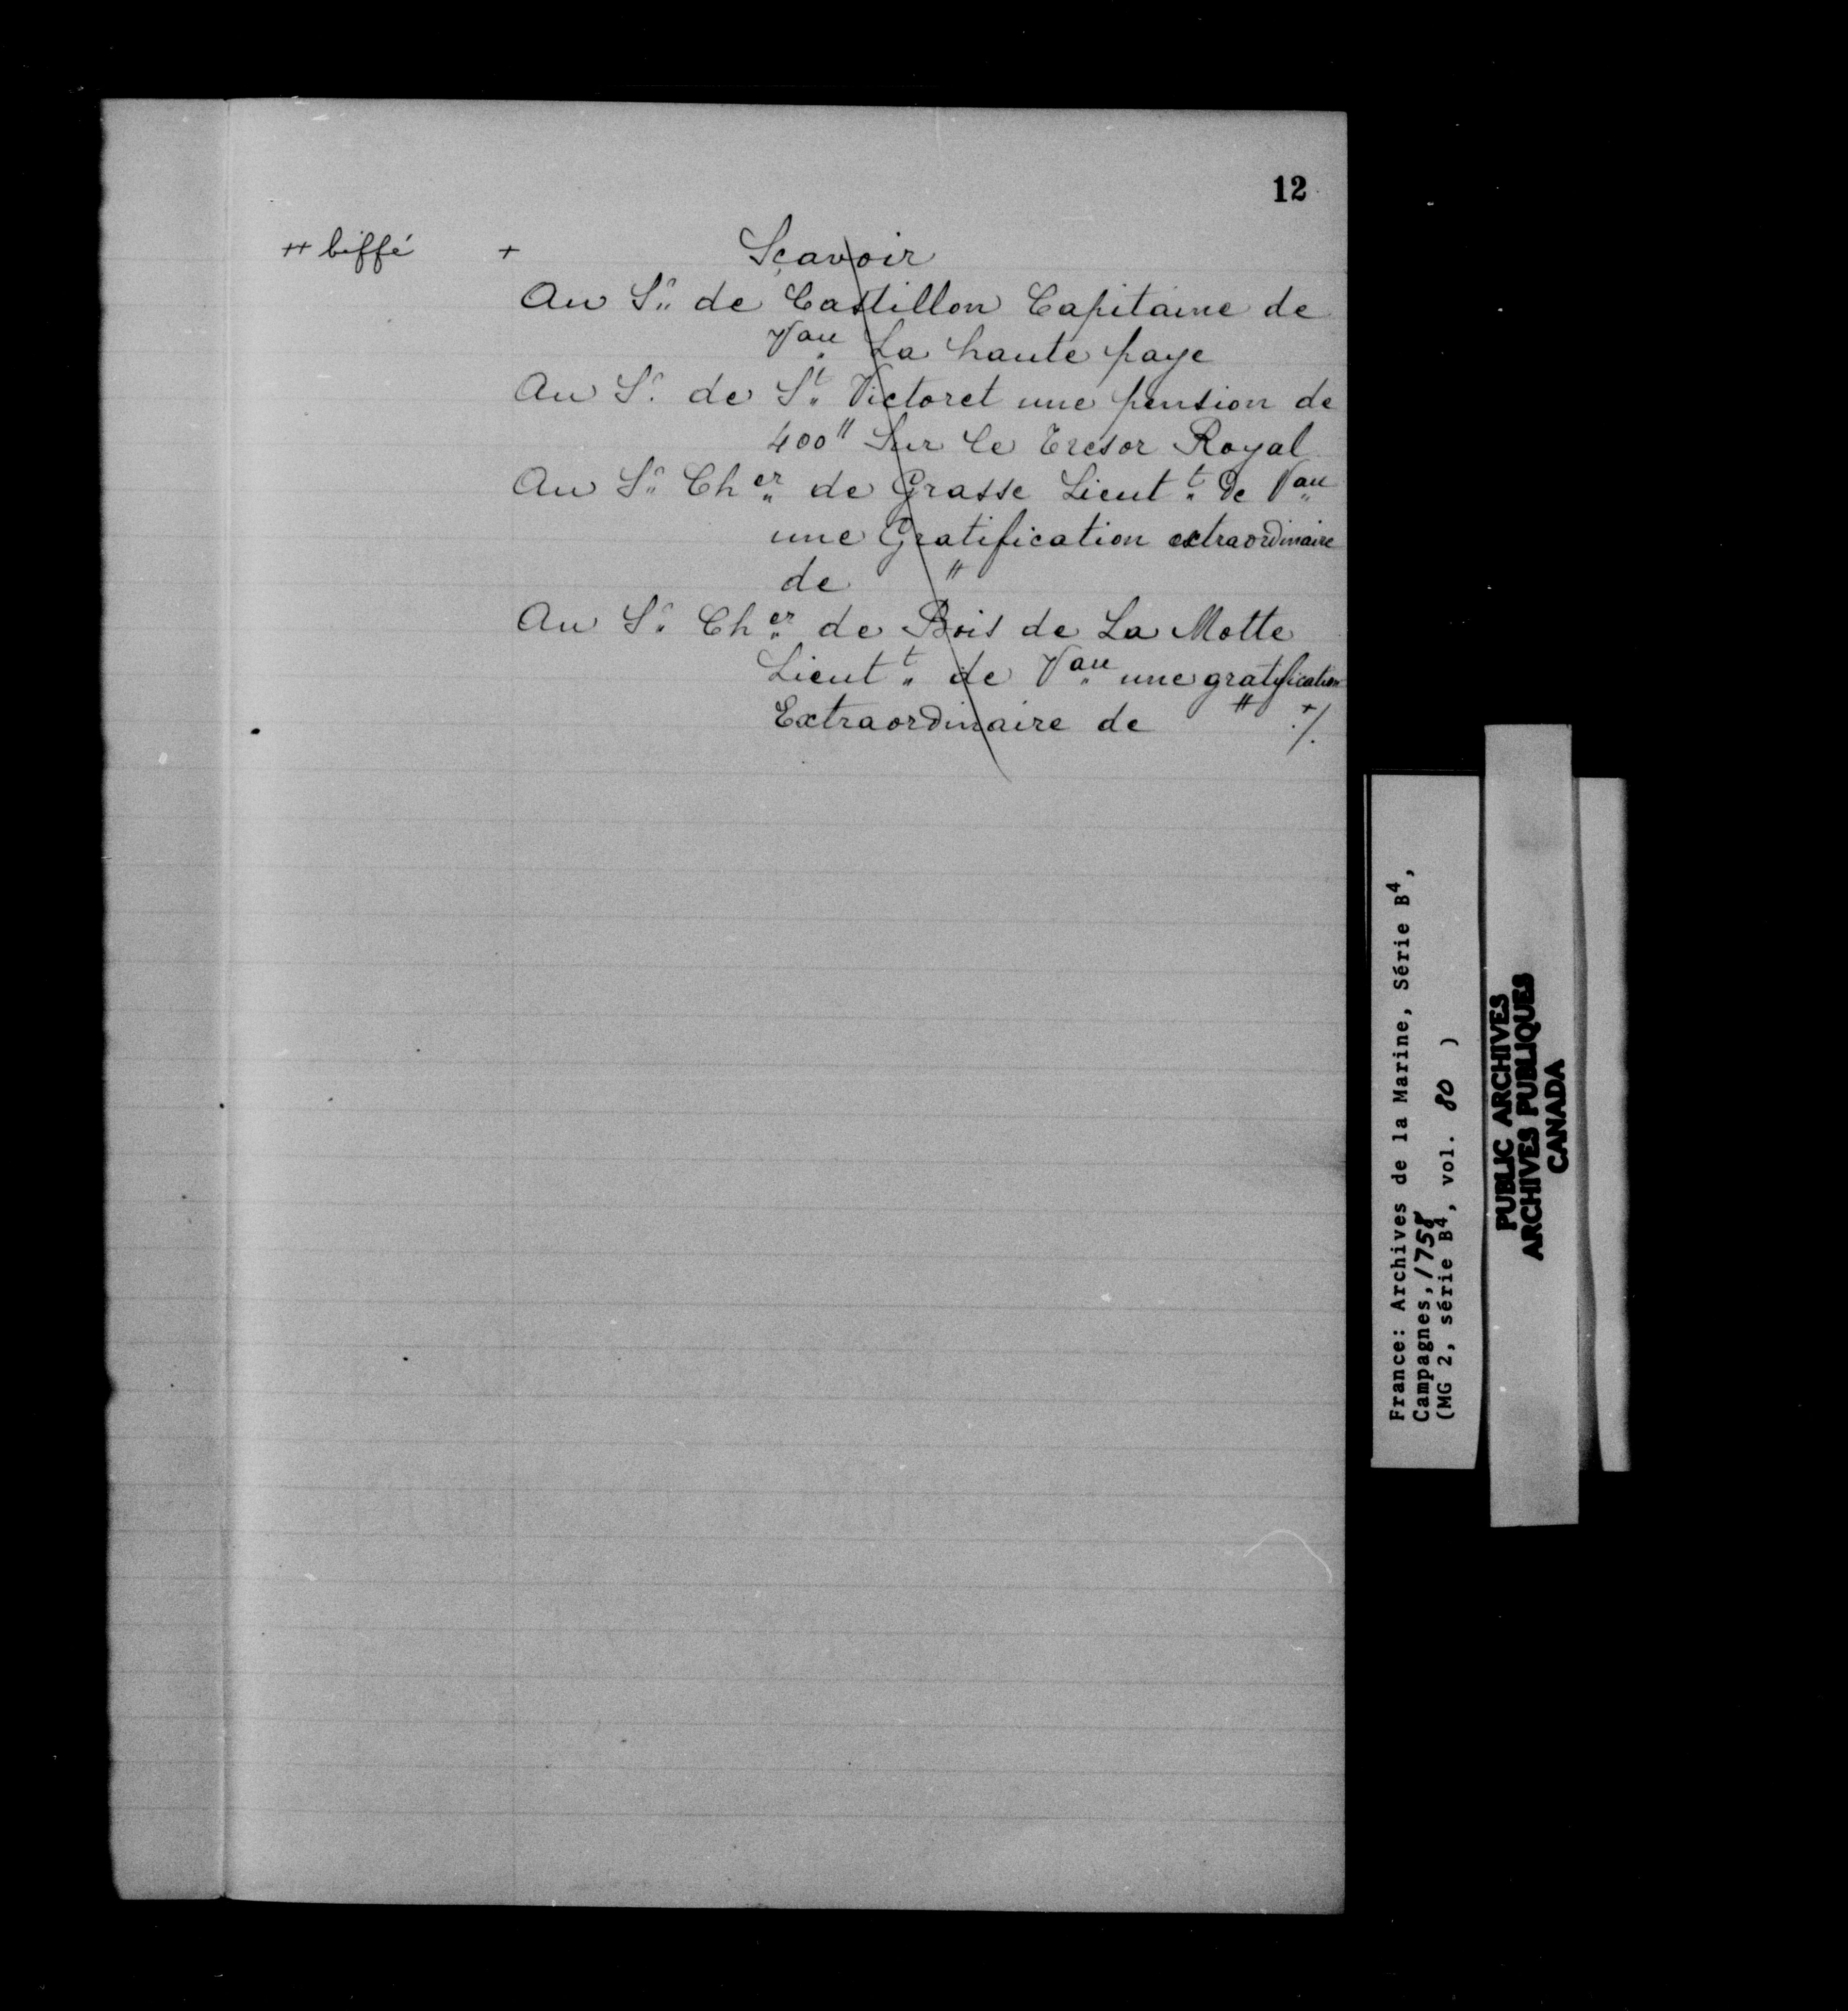 12
++ biffé + Sçavoir
Au Sr. de Castillon Capitaine de
Vau La haute paye
Au Sr. de St. Victoret une pension de
400# Sur le Tresor Royal
Au Sr. Cher. de Grasse Lieutt. de Vau
une Gratification extraordinaire
de #
Au Sr. Cher. de Bois de La Motte
Lieutt. de Vau une gratification
Extraordinaire de # + ./.
France: Archives de la Marine, Série B4,
Campagnes, 1758
(MG 2, série B4, vol. 80 )
PUBLIC ARCHIVES
ARCHIVES PUBLIQUES
CANADA